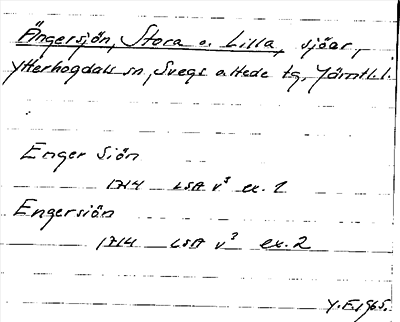 Ängersjön, Stora o. Lilla, sjöar,
Ytterhogdals sn, Svegs o Hede tg, Jämtl. l.
Enger Siön
1714 LSA V³ ex. 1
Engersiön
1714 LSA V³ ex. 2
Y.E. 1965.